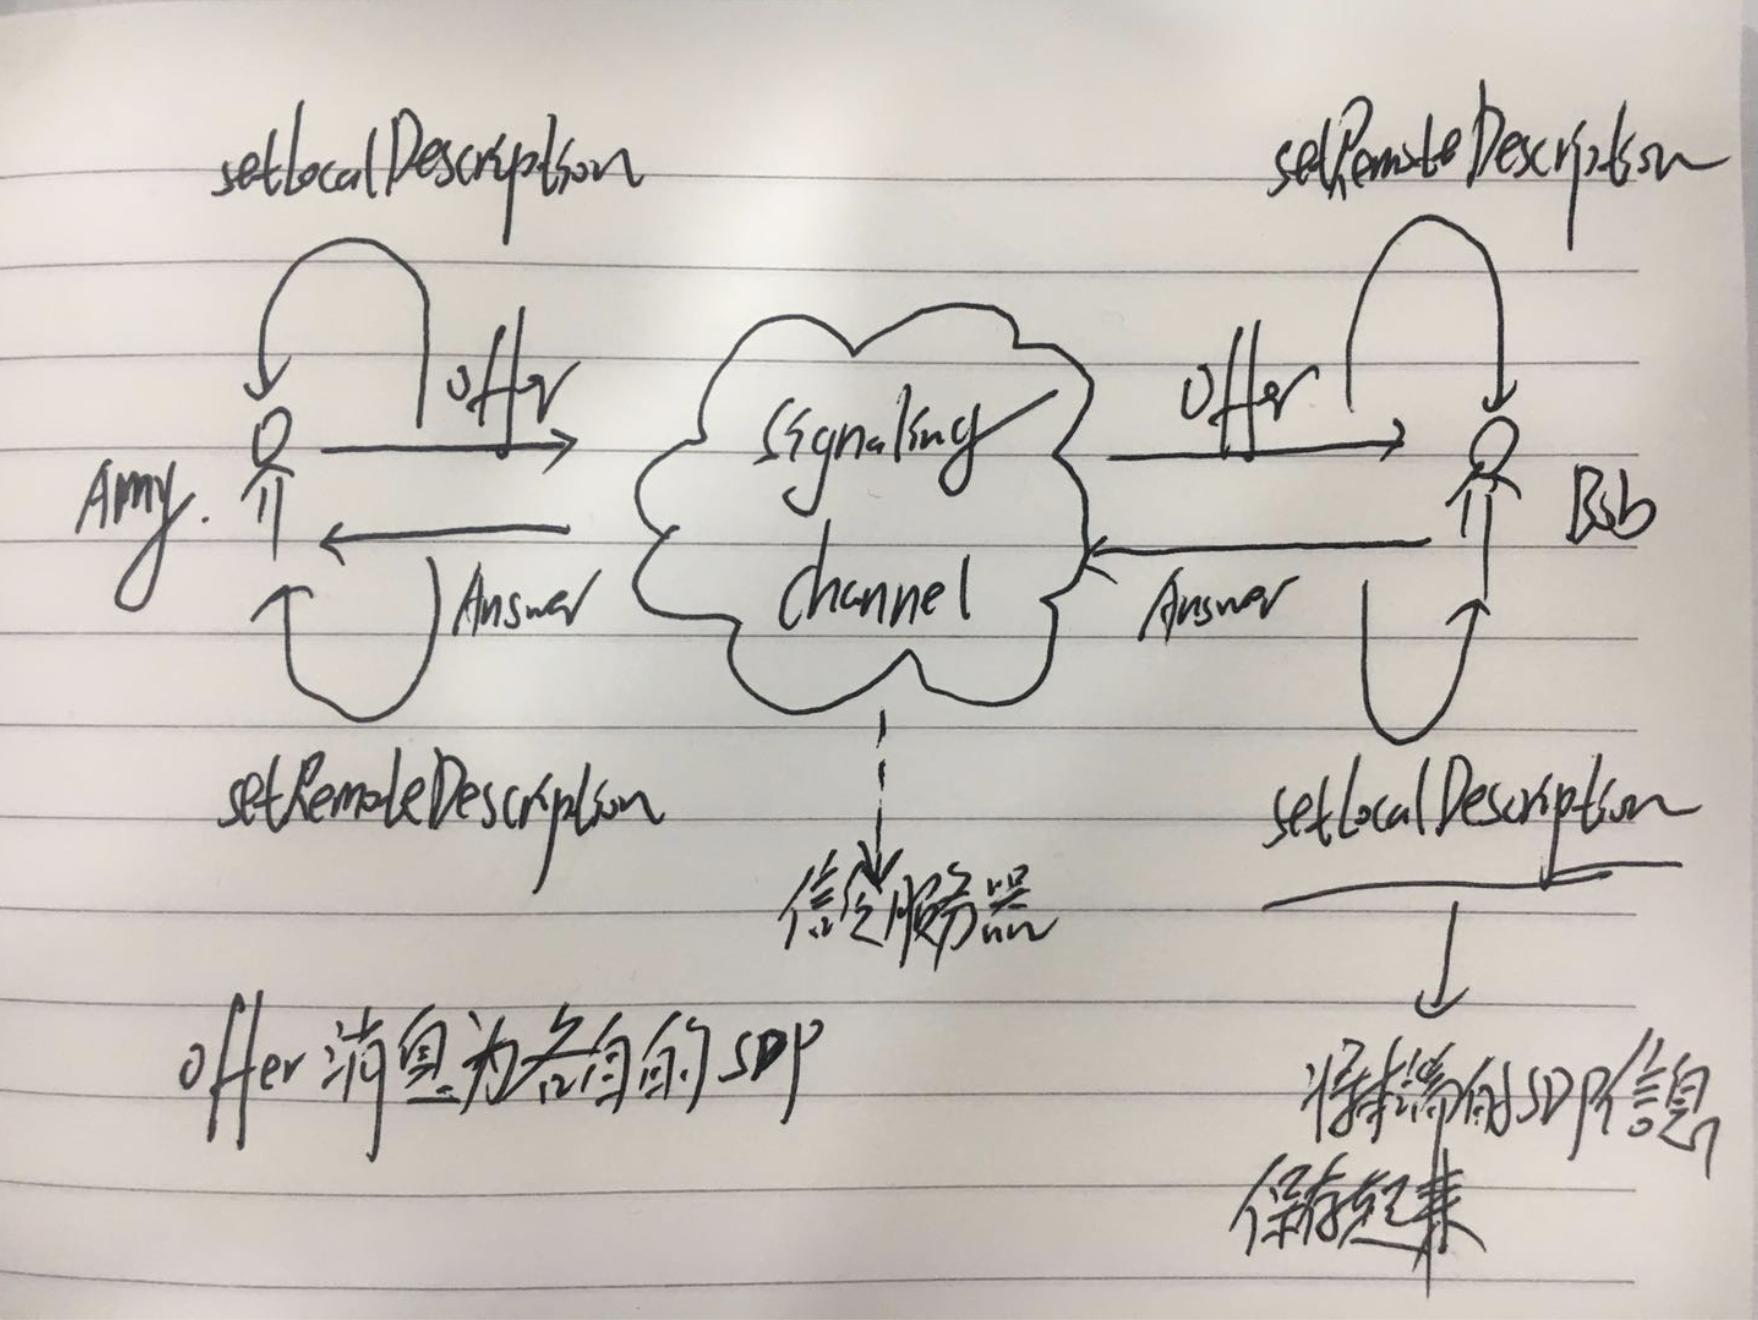 setLocalDescription
setRemoteDescription
offer
offer
signaling
channel
Amy.
Bob
Answer
Answer
setRemoteDescription
setLocalDescription
信令服务器
offer消息为各自的SDP
将本端的SDP信息
保存起来